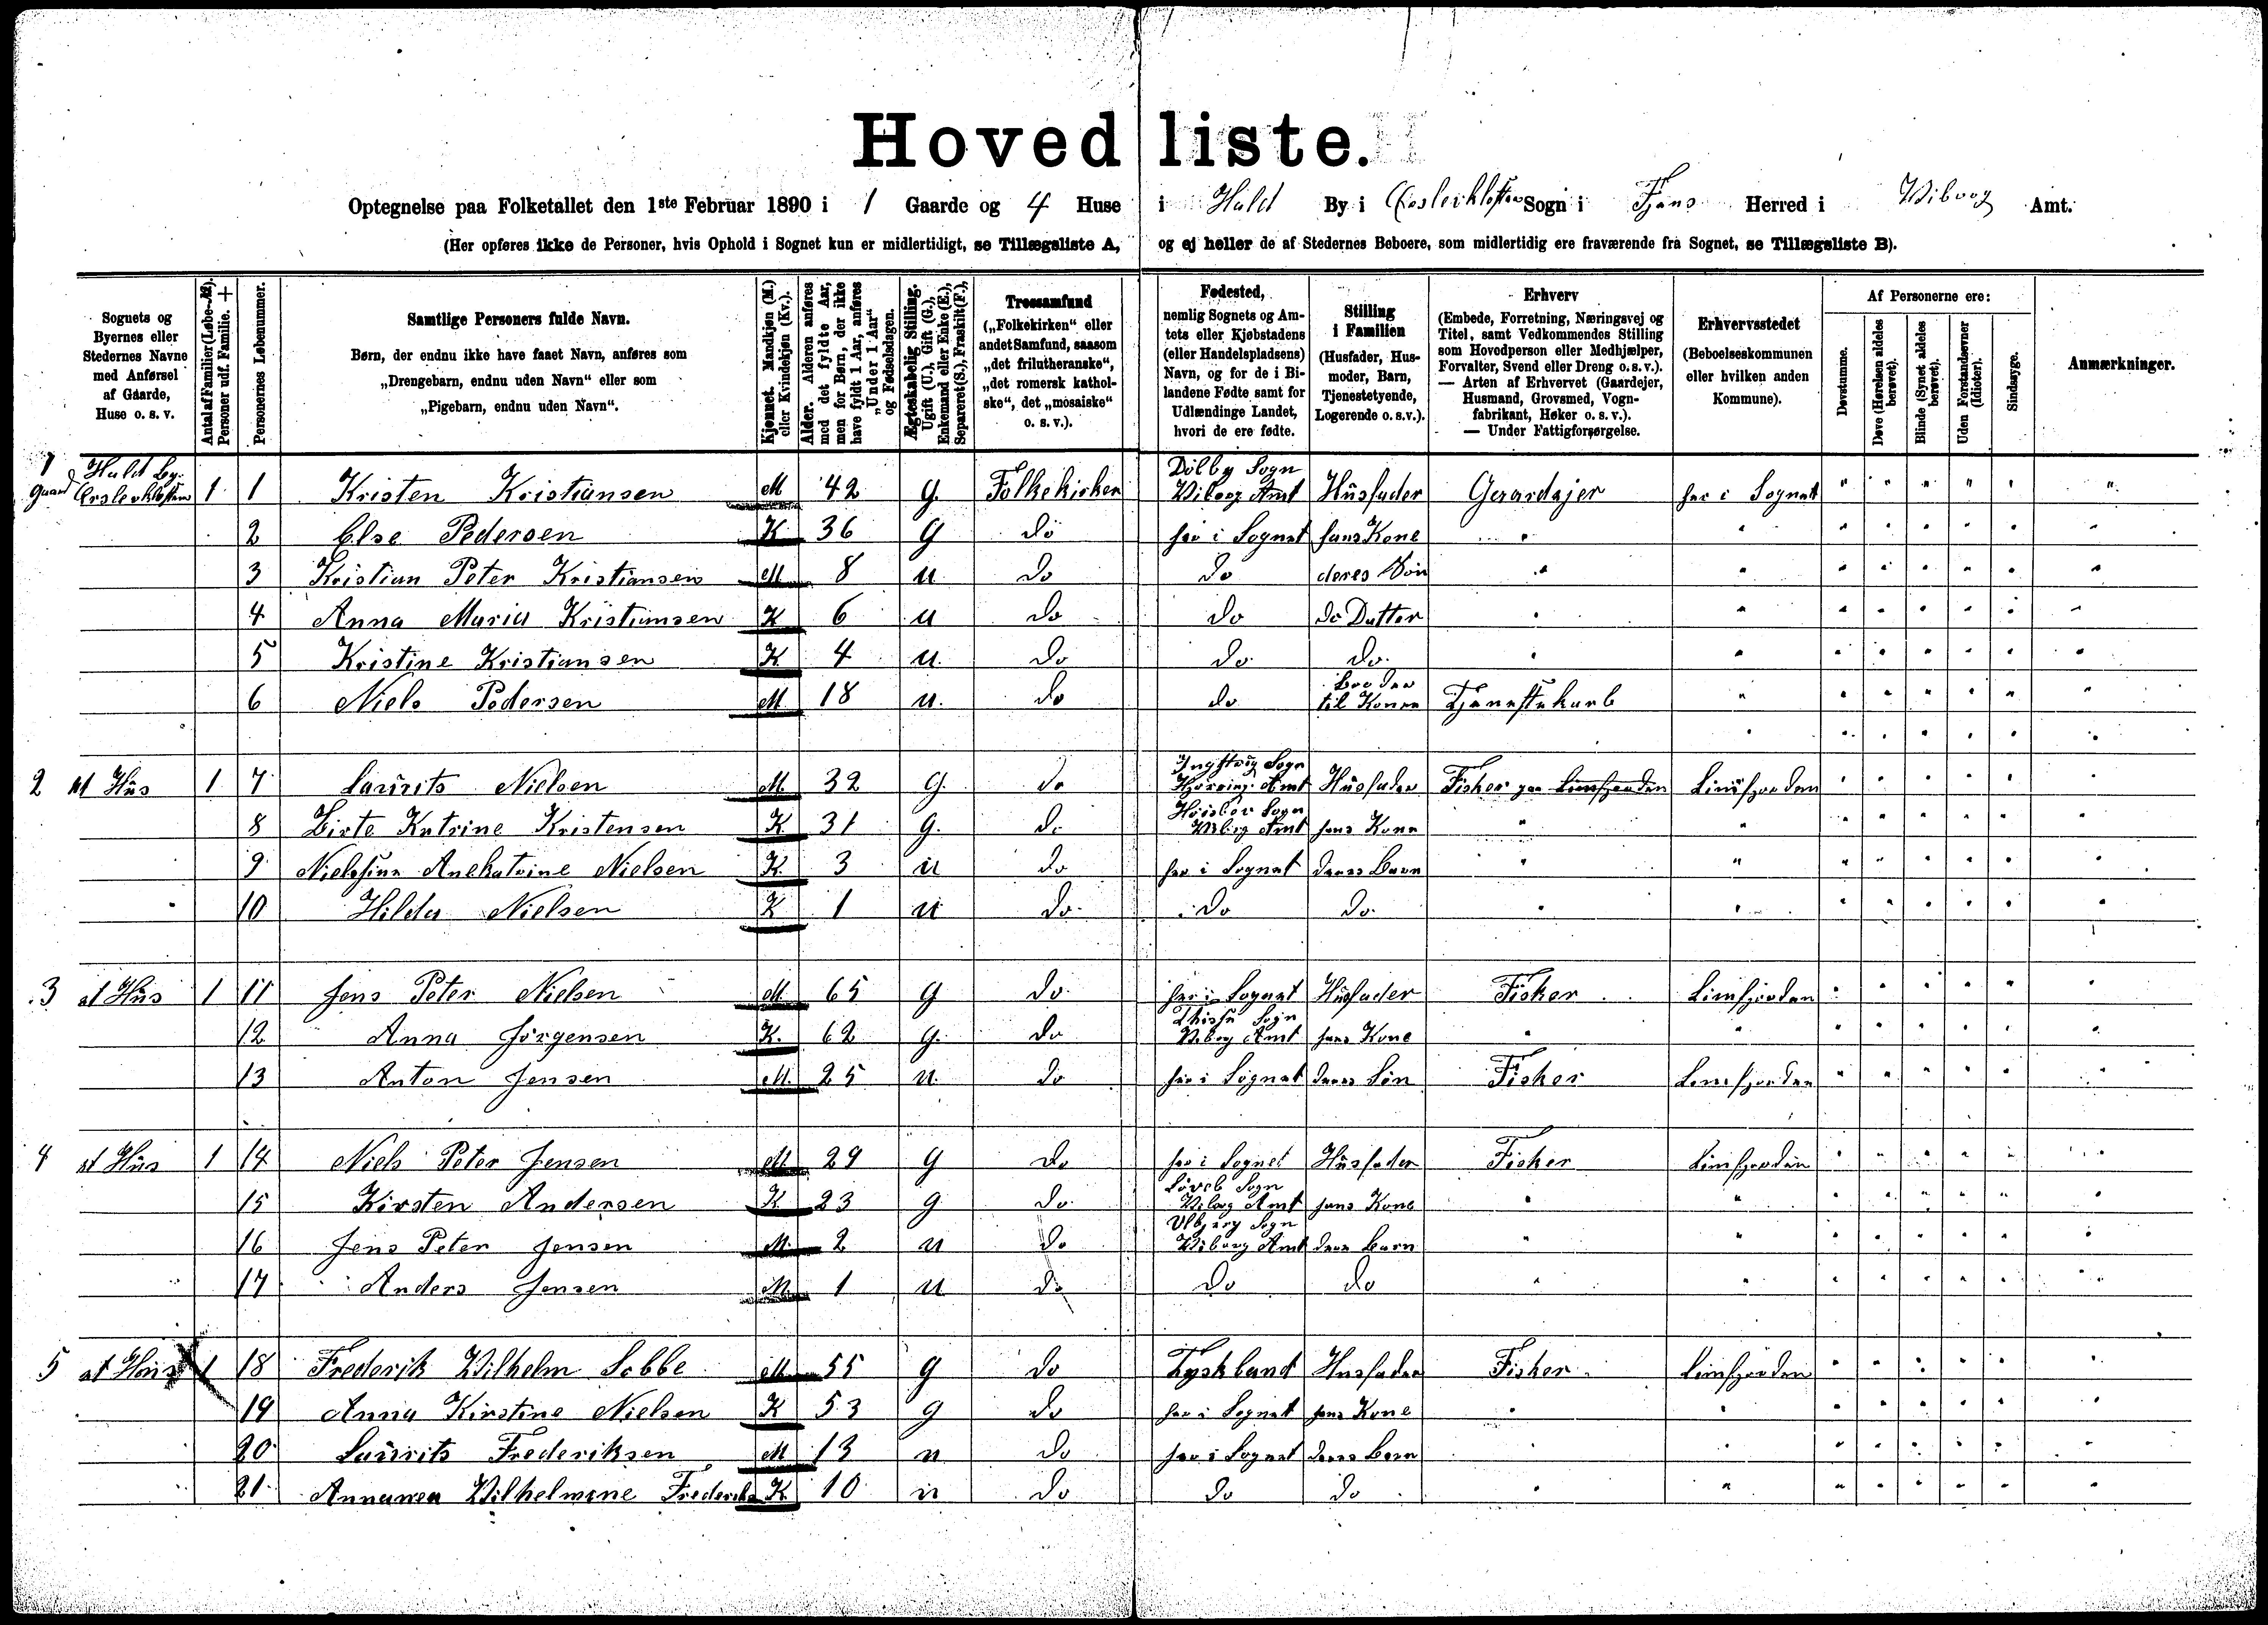 Hovedliste.
Optegnelse paa Folketallet den 1ste Februar 1890 i 1 Gaarde og 4 Huse i Hald By i Ørslevkloster Sogn i Fjens Herred i Viborg Amt.
(Her opføres ikke de Personer, hvis Ophold i Sognet kun er midlertidigt, se Tillægsliste A, og ej heller de af Stedernes Beboere, som midlertidig ere fraværende fra Sognet, se Tillægsliste B).
Sognets og Byernes eller Stedernes Navne med Anførsel af Gaarde, Huse o. s. v.
Antal af Familier (Løbe-№). Personer udf. Familie. +
Personernes Løbenummer.
Samtlige Personers fulde Navn.
Børn, der endnu ikke have faaet Navn, anføres som „Drengebarn, endnu uden Navn“ eller som „Pigebarn, endnu uden Navn“.
Kjønnet. Mandkjøn (M.) eller Kvindekjøn (Kv.).
Alder. Alderen anføres med det fyldte Aar, men for Børn, der ikke have fyldt 1 Aar, anføres „Under 1 Aar“ og Fødselsdagen.
Ægteskabelig Stilling. Ugift (U.), Gift (G.), Enkemand eller Enke (E.), Separeret (S.), Fraskilt (F.).
Trossamfund („Folkekirken“ eller andet Samfund, saasom „det frilutheranske“, „det romersk katholske“, det „mosaiske“ o. s. v.).
Fødested, nemlig Sognets og Amtets eller Kjøbstadens (eller Handelspladsens) Navn, og for de i Bilandene Fødte samt for Udlændinge Landet, hvori de ere fødte.
Stilling i Familien (Husfader, Husmoder, Barn, Tjenestetyende, Logerende o. s. v.).
Erhverv (Embede, Forretning, Næringsvej og Titel, samt Vedkommendes Stilling som Hovedperson eller Medhjælper, Forvalter, Svend eller Dreng o. s. v.). — Arten af Erhvervet (Gaardejer, Husmand, Grovsmed, Vognfabrikant, Høker o. s. v.). — Under Fattigforsørgelse.
Erhvervsstedet (Beboelseskommunen eller hvilken anden Kommune).
Af Personerne ere:
Døvstumme.
Døve (Hørelsen aldeles berøvet).
Blinde (Synet aldeles berøvet).
Uden Forstandsevner (Idioter).
Sindssyge.
Anmærkninger.
1 Gaard Hald By Ørslevkloster 1 1 Kristen Kristiansen M 42 G. Folkekirken Dölby Sogn Viborg Amt Husfader Gaardejer her i Sognet " " " " " "
2 Else Pedersen K 36 G do her i Sognet hans Kone " " " " " " " "
3 Kristian Peter Kristiansen M 8 U do do deres Sön " " " " " " " "
4 Anna Maria Kristiansen K 6 U do do do Datter " " " " " " " "
5 Kristine Kristiansen K 4 U. do do do. " " " " " " " "
6 Niels Pedersen M. 18 U. do do Broder til Konen Tjenestekarl " " " " " " "
2 et Hus 1 7 Laurits Nielsen M. 32 G. do Sogn Hjørring Amt Husfader Fisher paa Limfjorden Limfjorden " " " " " "
8 Birte Katrine Kristensen K. 31 G. do Höislev Sogn Viborg Amt hans Kone " " " " " " " "
9 Nielsine Anekatrine Nielsen K. 3 U do her i Sognet deres Barn " " " " " " " "
10 Hilda Nielsen K 1 U do do do. " " " " " " " "
3 et Hus 1 11 Jens Peter Nielsen M. 65 G do her i Sognet Husfader Fisker Limfjorden " " " " " "
12 Anna Jörgensen K. 62 G. do Sogn Viborg Amt hans Kone " " " " " " " "
13 Anton Jensen M. 25 U. do her i Sognet deres Sön Fisker Limfjorden " " " " " "
4 et Hus 1 14 Niels Peter Jensen M 29 G do her i Sognet Husfader Fisker Limfjorden " " " " " "
15 Kirsten Andersen K 23 G do Lövel Sogn Viborg Amt hans Kone " " " " " " " "
16 Jens Peter Jensen M. 2 U do Ulbjerg Sogn Viborg Amt deres Barn " " " " " " " "
17 Anders Jensen M. 1 U do do do " " " " " " " "
5 et Hus 1 18 Frederik Vilhelm Sobbe M 55 G do Tyskland Husfader Fisker Limfjorden " " " " " "
19 Anna Kirstine Nielsen K 53 G do her i Sognet hans Kone " " " " " " " "
20 Laurits Frederiksen M 13 U do her i Sognet deres Børn " " " " " " " "
21 Vilhelmine K. 10 U do do do " " " " " " " "